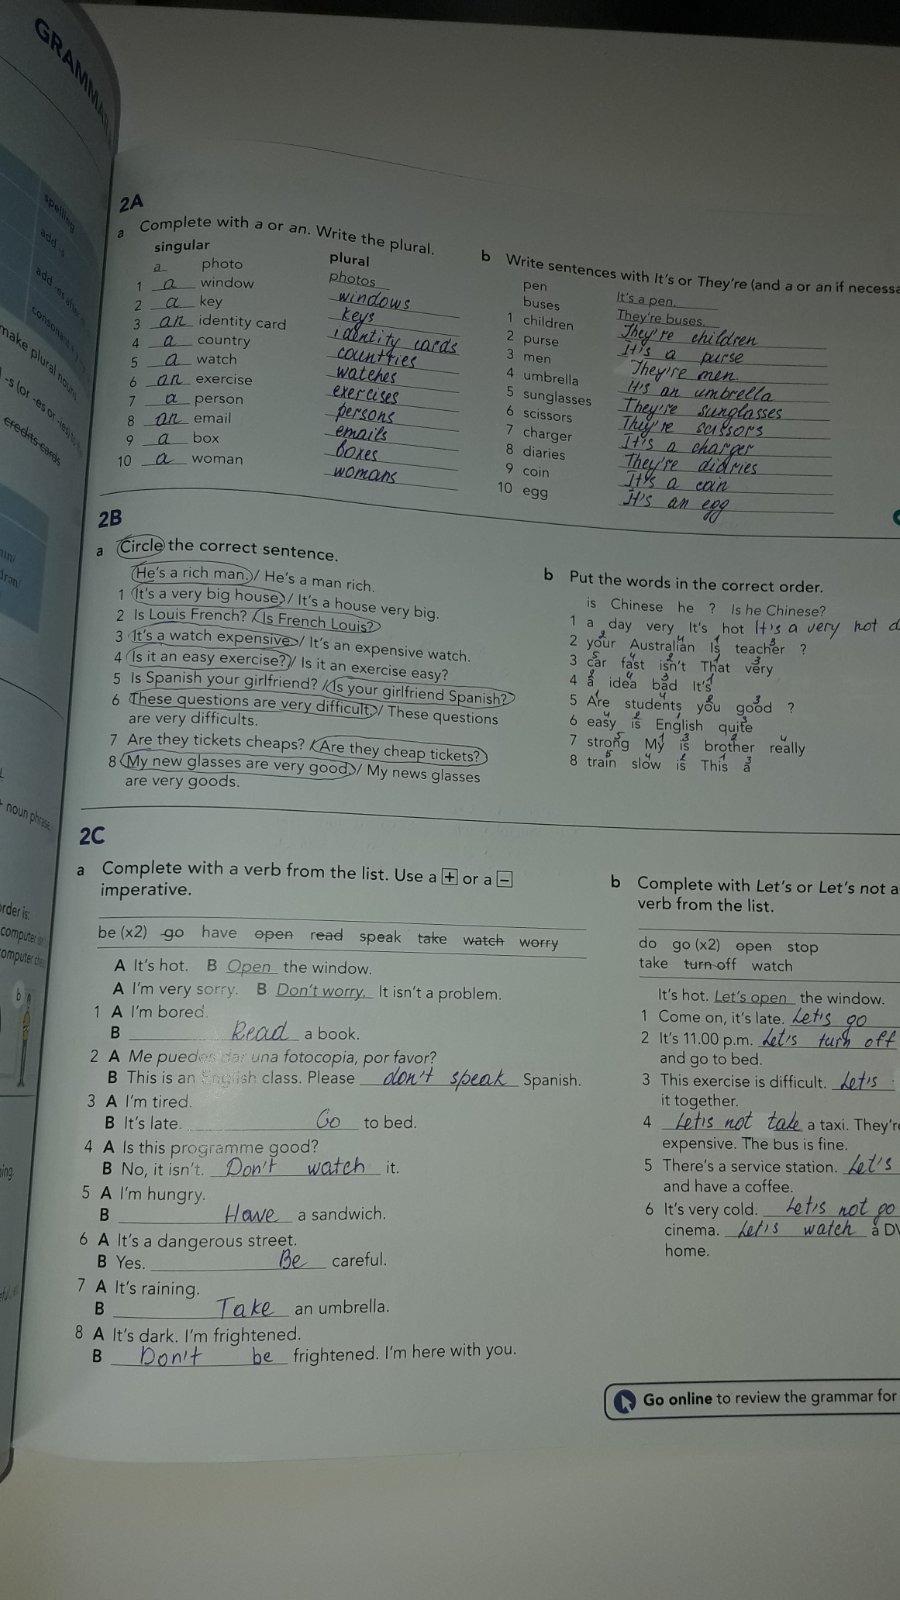 GRAMMAR
spelling
add -s
make plural nouns
credits cards
noun phrase
2A
a Complete with a or an. Write the plural.
singular plural
a photo photos
1 a window windows
2 a key keys
3 an identity card identity cards
4 a country countries
5 a watch watches
6 an exercise exercises
7 a person persons
8 an email emails
9 a box boxes
10 a woman womans
b Write sentences with It's or They're (and a or an if
pen It's a pen.
buses They're buses.
1 children They're children
2 purse It's a purse
3 men They're men.
4 umbrella It's an umbrella
5 sunglasses They're sunglasses
6 scissors They're scissors
7 charger It's a charger
8 diaries They're diaries
9 coin It's a coin
10 egg It's an egg
2B
a Circle the correct sentence.
He's a rich man. / He's a man rich.
1 It's a very big house / It's a house very big.
2 Is Louis French? / Is French Louis?
3 It's a watch expensive / It's an expensive watch.
4 Is it an easy exercise? / Is it an exercise easy?
5 Is Spanish your girlfriend? / Is your girlfriend Spanish?
6 These questions are very difficult / These questions
are very difficults.
7 Are they tickets cheaps? / Are they cheap tickets?
8 My new glasses are very good / My news glasses
are very goods.
b Put the words in the correct order.
is Chinese he ? Is he Chinese?
1 a day very It's hot It's a very hot d
2 your Australian Is teacher ?
3 car fast isn't That very
4 a idea bad It's
5 Are students you good ?
6 easy is English quite
7 strong My is brother really
8 train slow is This a
2C
a Complete with a verb from the list. Use a + or a −
imperative.
be (x2) go have open read speak take watch worry
A It's hot. B Open the window.
A I'm very sorry. B Don't worry. It isn't a problem.
1 A I'm bored.
B Read a book.
2 A Me puedes dar una fotocopia, por favor?
B This is an English class. Please don't speak Spanish.
3 A I'm tired.
B It's late. Go to bed.
4 A Is this programme good?
B No, it isn't. Don't watch it.
5 A I'm hungry.
B Have a sandwich.
6 A It's a dangerous street.
B Yes. Be careful.
7 A It's raining.
B Take an umbrella.
8 A It's dark. I'm frightened.
B Don't be frightened. I'm here with you.
b Complete with Let's or Let's not a
verb from the list.
do go (x2) open stop
take turn off watch
It's hot. Let's open the window.
1 Come on, it's late. Let's go
2 It's 11.00 p.m. Let's turn off
and go to bed.
3 This exercise is difficult. Let's
it together.
4 Let's not take a taxi. They're
expensive. The bus is fine.
5 There's a service station. Let's
and have a coffee.
6 It's very cold. Let's not go
cinema. Let's watch a DV
home.
Go online to review the grammar for